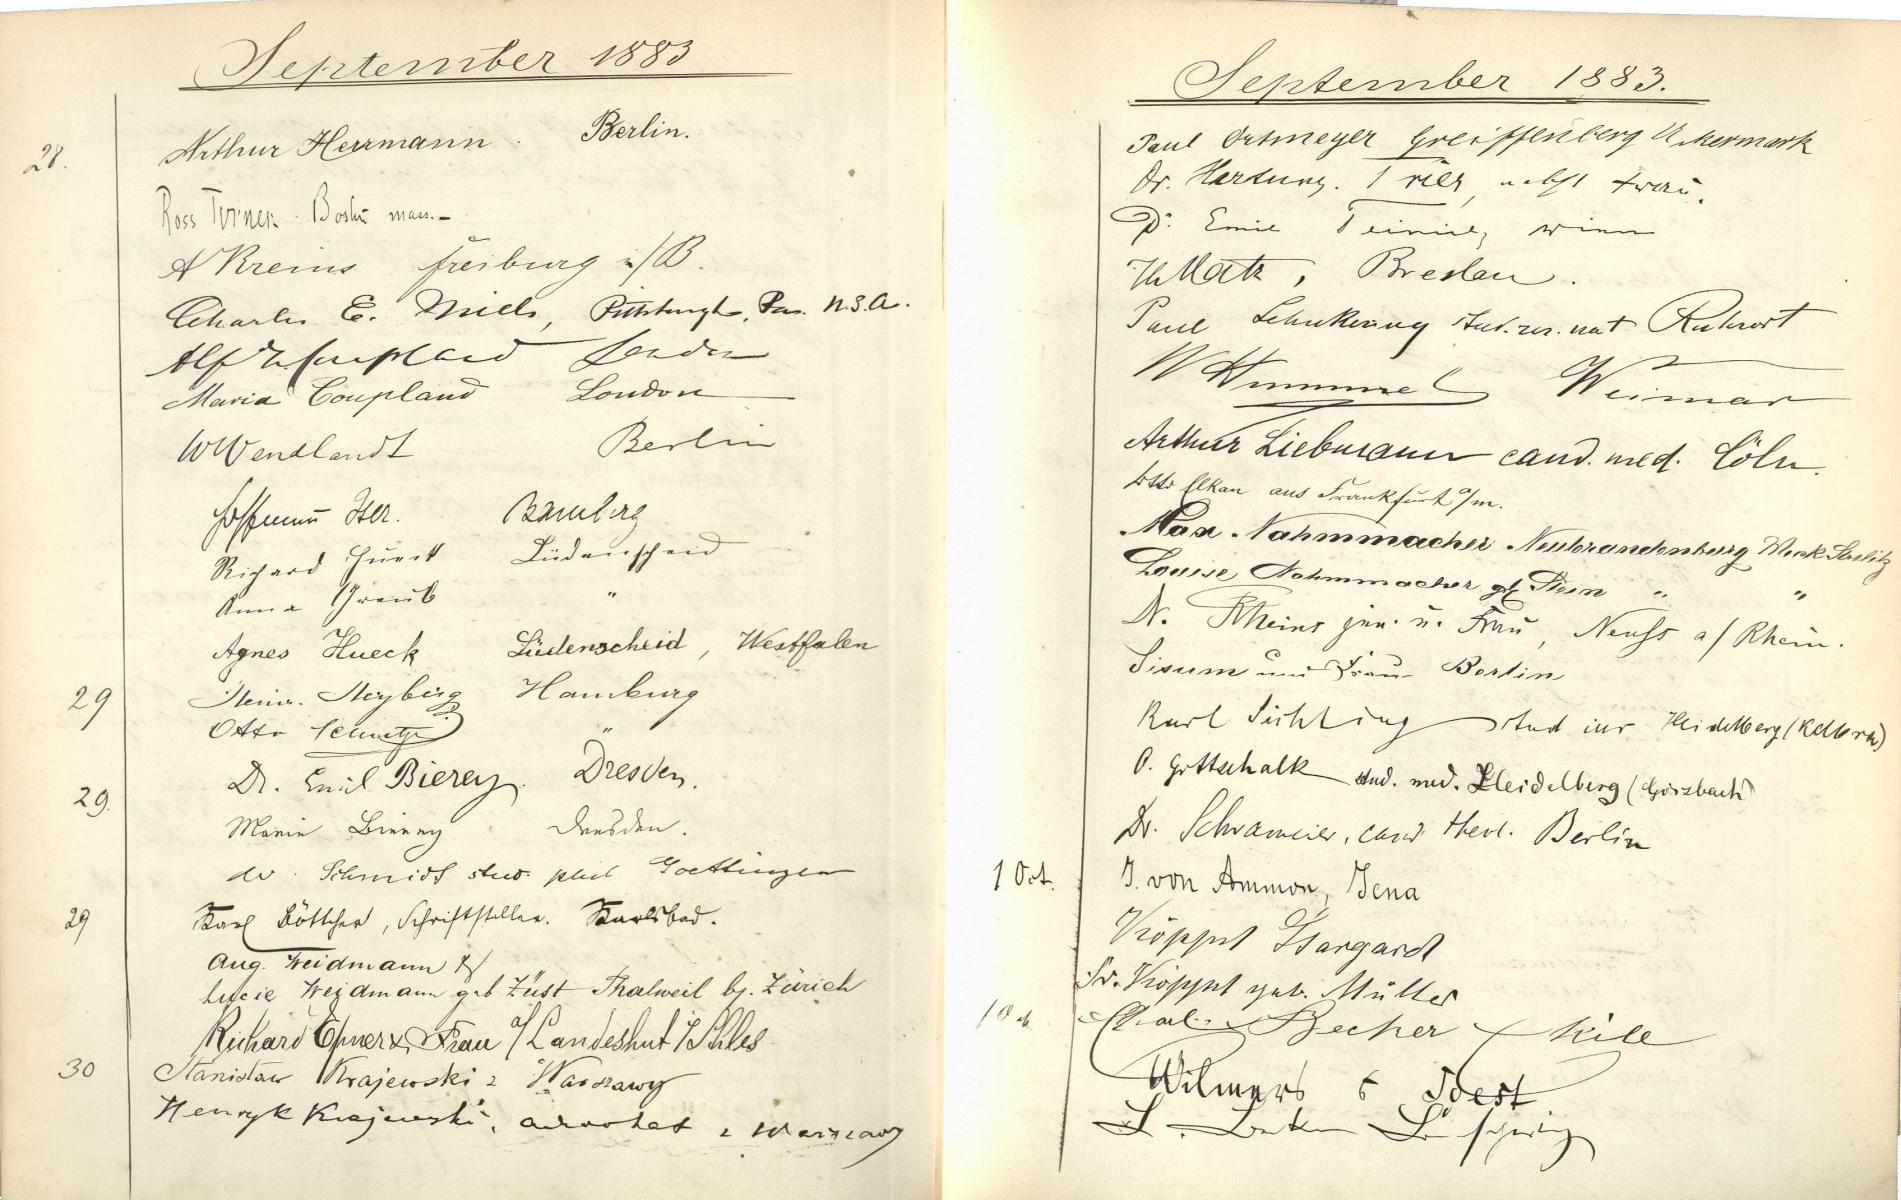 September 1883
28. Arthur Herrmann. Berlin.
Ross Turner. Boston mass.
A Kreins freiburg i/B.
Charles E. Mills, Pittsburgh, Pa. U.S.A.
Coupland London
Maria Coupland London
W Wendlandt Berlin
Hoffmann Bamberg
Richard Hueck Lüdenscheid
Anna "
Agnes Hueck Lüdenscheid, Westfalen
29 Heinr. Hamburg
Otto "
Dr. Emil Bierey. Dresden.
29. Marie Bierey Dresden.
Schmidt stud. phil Goettingen
29 Karl Böttcher, Schriftsteller. Karlsbad.
Aug. Weidmann &
Lucie Weidmann geb Züst Thalweil bj. Zürich
Richard & Frau a/ Landeshut i/Schles
30 Stanisław Krajewski z Warszawy
Henryk Krajewski, adwokat z Warszawy
September 1883.
Paul Ortmeyer Greiffenberg Uckermark
Dr. Hartung. Trier, nebst Frau.
Dr. Emil Wien
Th Matz, Breslau.
Paul stud. rer. nat Ruhrort
W Hummel Weimar
Arthur Liebmann cand. med. Cöln.
Otto Elkan aus Frankfurt a/m.
Max Nahmmacher Neubrandenburg Meck Strelitz
Louise Nahmmacher " "
N. Rheins jun. u. Frau, Neuss a/Rhein.
Sisum und Frau Berlin
Karl Sichting stud jur Heidelberg (Kelbra)
O. Gottschalk stud. med. Heidelberg (Görsbach)
Dr. Schrameier, cand theol. Berlin
1 Oct. J. von Ammon, Jena
Kröpput Stargard
Fr. Kröpput geb. Müller
1 Oct. Becker
Wilmers Soest
L.